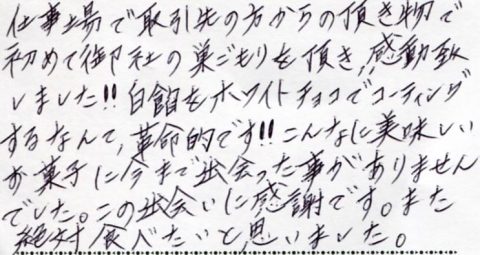 仕事場で取引先の方からの頂き物で
初めて御社の巣ごもりを頂き、感動致
しました!!白餡をホワイトチョコでコーティング
するなんて、革命的です!!こんなに美味しい
お菓子に今まで出会った事がありません
でした。この出会いに感謝です。また
絶対食べたいと思いました。